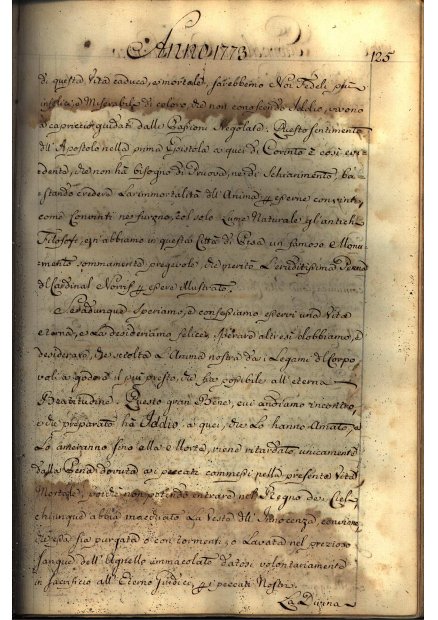 Anno 1773
125
di questa Vita caduca, e mortale, sarebbemo Noi Fedeli più
infelici, e Miserabili di coloro, che non conoscendo Iddio, vivono
a capriccio, guidati dalle Passioni Regolate. Questo sentimento
dell' Apostolo nella prima Epistola a quei di Corinto è così evi-
dente, che non ha bisogno di Pruova, nè di Schiarimento, ba-
stando credere L'immortalità dell' Anima p esserne convinti,
come Convinti ne furono, col solo Lume Naturale gl'antichi
Filosofi, e n'abbiamo in questa Città di Pisa un famoso Monu-
mento sommamente pregevole, che meritò L'eruditissima Penna
del Cardinal Norris p essere illustrato.
Se adunque speriamo, e confessiamo esservi una Vita
eterna, e La desideriamo felice, sperare altresì dobbiamo, e
desiderare, che sciolta L'Anima nostra da i Legami del Corpo
voli a godere il più presto, che sia possibile all' eterna
Beatitudine. Questo gran Bene, cui andiamo incontro,
e che preparato ha Iddio a quei, che Lo hanno Amato, e
Lo ameranno fino alla Morte, viene ritardato unicamente
dalla Pena dovuta a i peccati commessi nella presente Vita
Mortale, poichè non potendo entrare nel Regno dei Cieli
chiunque abbia macchiato La Veste dell' Innocenza, conviene,
che essa sia purgata o con tormenti, o Lavata nel prezioso
Sangue dell' Agnello immacolato datosi volontariamente
in Sacrificio all' Eterno Giudice p i peccati Nostri.
La Divina